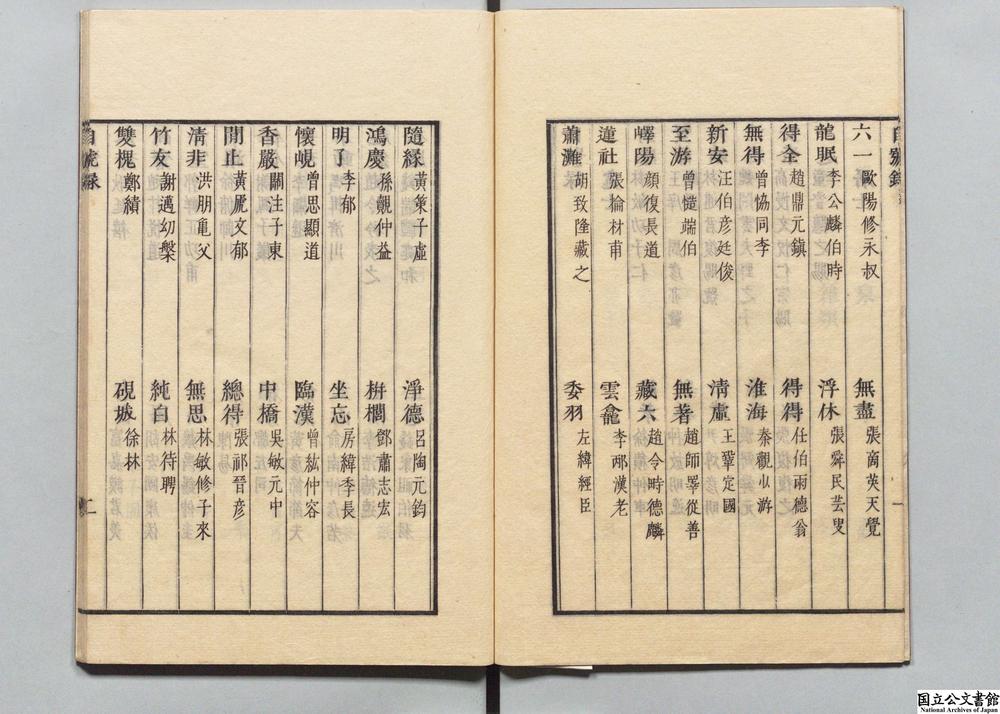 自號錄
六一 歐陽修永叔 無盡 張商英天覺
龍眠 李公麟伯時 浮休 張舜民芸叟
得全 趙鼎元鎮 得得 任伯雨德翁
無得 曾協同季 淮海 秦觀少游
新安 汪伯彥廷俊 清虛 王鞏定國
至游 曾慥端伯 無著 趙師睪從善
嶧陽 顏復長道 藏六 趙令時德麟
蓮社 張掄材甫 雲龕 李邴漢老
蕭灘 胡致隆藏之 委羽 左緯經臣
一
隨緣 黃策子虛 淨德 呂陶元鈞
鴻慶 孫覿仲益 栟櫚 鄧肅志宏
明了 李郁 坐忘 房緯季長
懷峴 曾思顯道 臨漢 曾紘仲容
香嚴 關注子東 中橋 吳敏元中
閒止 黃文郁 總得 張祁晉彥
清非 洪朋龜父 無思 林敏修子來
竹友 謝薖幼槃 純白 林待聘
雙槐 鄭績 硯坡 徐林
自號錄
二
国立公文書館
National Archives of Japan